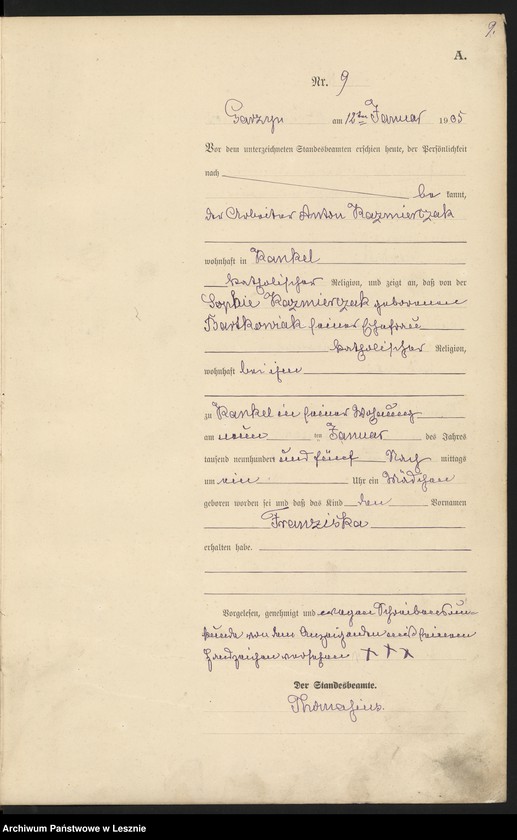 9.
A.
Nr. 9
Garzyn am 12ten Januar 1905
Vor dem unterzeichneten Standesbeamten erschien heute, der Persönlichkeit
nach be kannt,
der Arbeiter Anton Kazmierczak
wohnhaft in Kankel
katholischer Religion, und zeigt an, daß von der
Sophie Kazmierczak geborenen
Bartkowiak seiner Ehefrau
katholischer Religion,
wohnhaft bei ihm
zu Kankel in seiner Wohnung
am neun ten Januar des Jahres
tausend neunhundert und fünf Nach mittags
um ein Uhr ein Mädchen
geboren worden sei und daß das Kind den Vornamen
Franziska
erhalten habe.
Vorgelesen, genehmigt und wegen Schreibensun-
kunde von dem Anzeigenden mit seinem
Handzeichen versehen XXX
Der Standesbeamte.
Thomasius.
Archiwum Państwowe w Lesznie